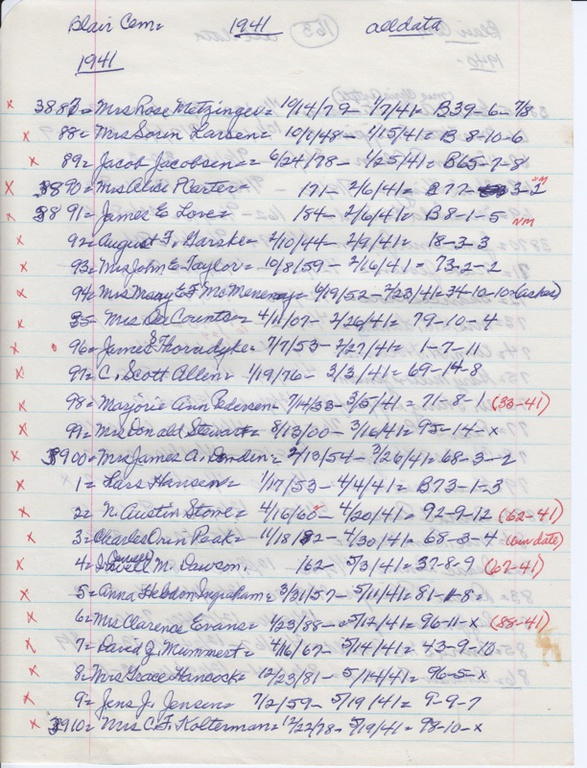 Blair Cem= 1941 all data
1941
x 3887= Mrs Rose Metzinger= 10/14/79 - 1/7/41= B39-6-7/8
x 88= Mrs Soren Larsen= 10/1/48 - 1/15/41= B 8-10-6
x 89= Jacob Jacobsen= 6/24/78 - 1/25/41= B65-7-8
x 3890= Mrs Alice P Carter= 171 - 2/6/41= B 77- 3-2 NM
x 3891= James E Love= 184 - 2/6/41= B8-1-5 NM
x 92= August F. Garske= 2/10/44 - 2/9/41= 18-3-3
x 93= Mrs John E Taylor= 10/8/59 - 2/16/41= 73-2-2
x 94= Mrs Mary E F McMenemy= 4/19/52 - 2/23/41= 34-10-10 (ashes)
x 95= Mrs Countso= 4/11/07 - 2/26/41= 79-10-4
x 96= James E Thorndyke= 7/7/53 - 2/27/41= 1-7-11
x 97= C. Scott Allen= 1/19/76 - 3/3/41= 69-14-8
x 98= Marjorie Ann Pedersen= 7/14/33 - 3/5/41= 71-8-1 (33-41)
x 99= Mrs Donald Stewart= 8/13/00 - 3/16/41= 95-14-x
x 3900= Mrs James A. 2/13/54 - 3/26/41= 68-3-2
x 1= Lars Hansen= 1/17/53 - 4/4/41= B73-1-3
x 2= N. Austin Stowe= 4/16/62 - 4/20/41= 92-9-12 (62-41)
x 3= Charles Orin Peak= 11/18/82 - 4/30/41= 68-3-4 (our date)
x 4= M. Dawson. 162 - 5/3/41= 37-8-9 (67-41)
x 5= Anna Hebdon Ingraham= 3/31/57 - 5/11/41= 81-1-8=
x 6= Mrs Clarence Evans= 1/23/88 - 5/12/41= 96-11-x (88-41)
x 7= David J. Mummert= 4/16/67 - 5/14/41= 43-9-10
x 8= Mrs Grace Hancock= 12/23/81 - 5/14/41= 96-5-x
x 9= Jens J. Jensen= 7/2/59 - 5/19/41= 9-9-7
x 3910= Mrs C. F. Kolterman= 12/22/78 - 5/19/41= 98-10-x